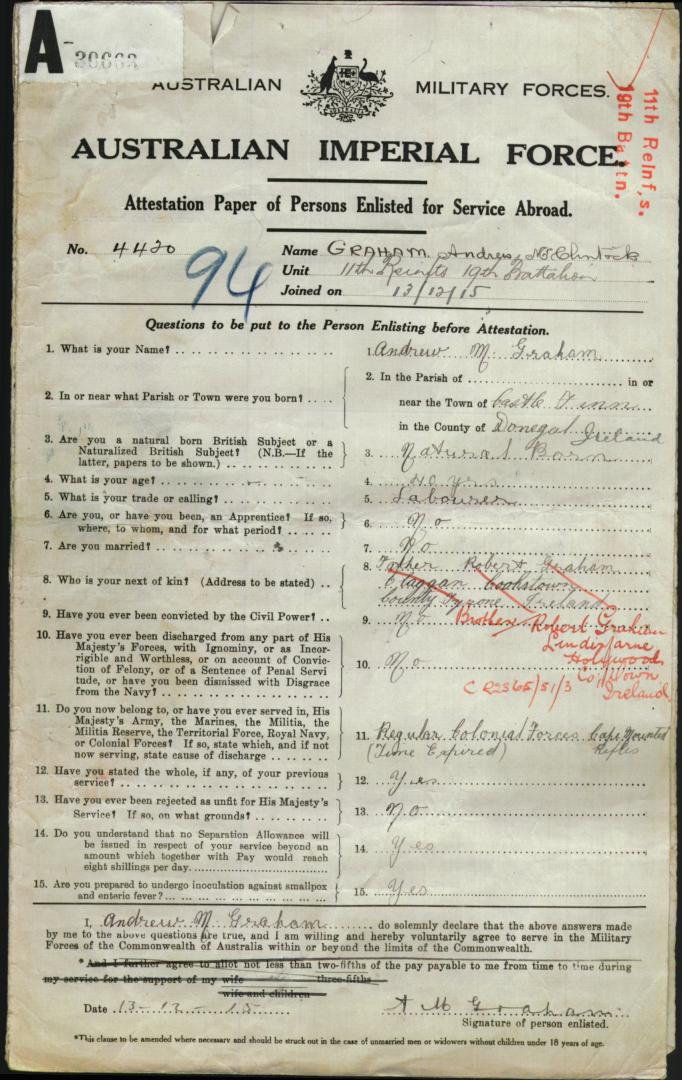 A
AUSTRALIAN MILITARY FORCES.
11th Reinf,s.
19th Battn.
AUSTRALIAN IMPERIAL FORCE.
Attestation Paper of Persons Enlisted for Service Abroad.
No. 4420
94
Name GRAHAM Andrew McClintock
Unit 11th Reinfts 19th Battalion
Joined on 13/12/15
Questions to be put to the Person Enlisting before Attestation.
1. What is your Name? 1. Andrew M Graham
2. In or near what Parish or Town were you born? 2. In the Parish of in or
near the Town of Castle Finn
in the County of Donegal Ireland
3. Are you a natural born British Subject or a
Naturalized British Subject? (N.B.—If the
latter, papers to be shown.) 3. Natural Born
4. What is your age? 4. 40 yrs
5. What is your trade or calling? 5. Labourer
6. Are you, or have you been, an Apprentice? If so,
where, to whom, and for what period? 6. No
7. Are you married? 7. No
8. Who is your next of kin? (Address to be stated) 8. Father Robert Graham
Claggan Cookstown
County Tyrone Ireland
Brother Robert Graham
Lindisfarne
Holywood
Co. Down
Ireland
CR2365/51/3
9. Have you ever been convicted by the Civil Power? 9. No
10. Have you ever been discharged from any part of His
Majesty's Forces, with Ignominy, or as Incor-
rigible and Worthless, or on account of Convic-
tion of Felony, or of a Sentence of Penal Servi
tude, or have you been dismissed with Disgrace
from the Navy? 10. No
11. Do you now belong to, or have you ever served in, His
Majesty's Army, the Marines, the Militia, the
Militia Reserve, the Territorial Force, Royal Navy,
or Colonial Forces? If so, state which, and if not
now serving, state cause of discharge 11. Regular Colonial Forces Cape Mounted
Rifles
(Time Expired)
12. Have you stated the whole, if any, of your previous
service? 12. Yes
13. Have you ever been rejected as unfit for His Majesty's
Service? If so, on what grounds? 13. No
14. Do you understand that no Separation Allowance will
be issued in respect of your service beyond an
amount which together with Pay would reach
eight shillings per day. 14. Yes
15. Are you prepared to undergo inoculation against smallpox
and enteric fever? 15. Yes
I, Andrew M Graham do solemnly declare that the above answers made
by me to the above questions are true, and I am willing and hereby voluntarily agree to serve in the Military
Forces of the Commonwealth of Australia within or beyond the limits of the Commonwealth.
*And I further agree to allot not less than two-fifths of the pay payable to me from time to time during
three-fifths
my service for the support of my wife
wife and children
Date 13-12-15
A M Graham
Signature of person enlisted.
*This clause to be amended where necessary and should be struck out in the case of unmarried men or widowers without children under 18 years of age.